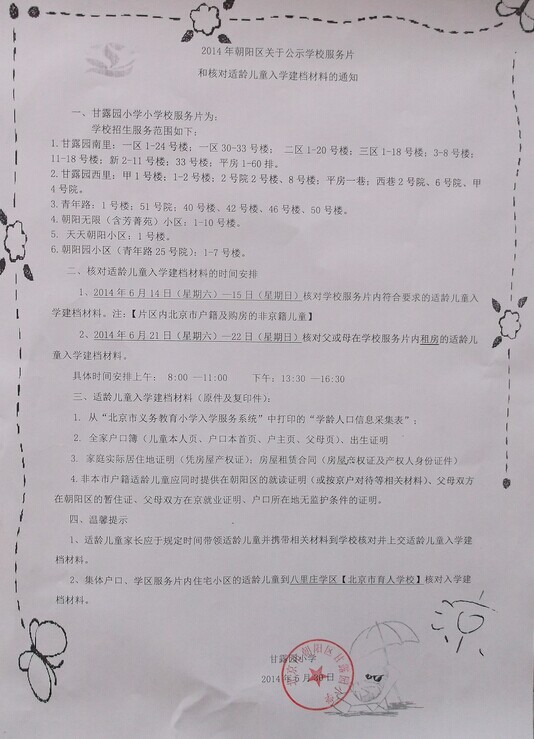 2014 年朝阳区关于公示学校服务片
和核对适龄儿童入学建档材料的通知
一、甘露园小学小学校服务片为:
学校招生服务范围如下:
1.甘露园南里: 一区 1-24 号楼; 一区 30-33 号楼; 二区 1-20 号楼; 三区 1-18 号楼; 3-8 号楼;
11-18 号楼; 新 2-11 号楼; 33 号楼; 平房 1-60 排。
2.甘露园西里: 甲 1 号楼; 1-2 号楼; 2 号院 2 号楼、8 号楼; 平房一巷; 西巷 2 号院、6 号院、甲
4 号院。
3.青年路: 1 号楼; 51 号院; 40 号楼、42 号楼、46 号楼、50 号楼。
4.朝阳无限(含芳菁苑)小区: 1-10 号楼。
5. 天天朝阳小区: 1 号楼。
6.朝阳园小区(青年路 25 号院): 1-7 号楼。
二、核对适龄儿童入学建档材料的时间安排
1、2014 年 6 月 14 日(星期六)—15 日(星期日)核对学校服务片内符合要求的适龄儿童入
学建档材料。注:【片区内北京市户籍及购房的非京籍儿童】
2、2014 年 6 月 21 日(星期六)—22 日(星期日)核对父或母在学校服务片内租房的适龄儿
童入学建档材料。
具体时间安排上午: 8:00 —11:00 下午: 13:30 —16:30
三、适龄儿童入学建档材料(原件及复印件):
1. 从“北京市义务教育小学入学服务系统”中打印的“学龄人口信息采集表”;
2. 全家户口簿(儿童本人页、户口本首页、户主页、父母页)、出生证明
3. 家庭实际居住地证明(凭房屋产权证); 房屋租赁合同(房屋产权证及产权人身份证件)
4.非本市户籍适龄儿童应同时提供在朝阳区的就读证明(或按京户对待等相关材料)、父母双方
在朝阳区的暂住证、父母双方在京就业证明、户口所在地无监护条件的证明。
四、温馨提示
1、适龄儿童家长应于规定时间带领适龄儿童并携带相关材料到学校核对并上交适龄儿童入学建
档材料。
2、集体户口、学区服务片内住宅小区的适龄儿童到八里庄学区【北京市育人学校】核对入学建
档材料。
甘露园小学
2014 年 5 月 日